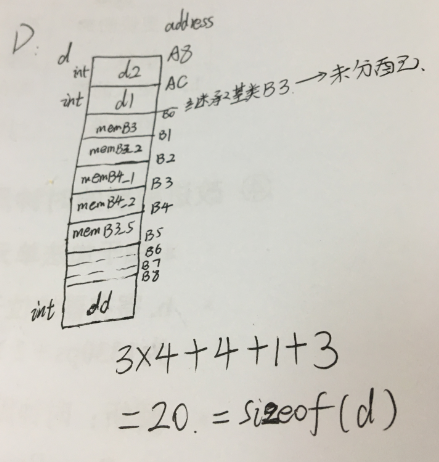 D:
d address
A8
int d2
AC
int d1
B0 继承2基类B3. → 未分配
memB3
B1
memB3_2
B2
memB4_1
B3
memB4_2
B4
memB3_5
B5
B6
B7
B8
int dd
3×4+4+1+3
=20. = sizeof(d)